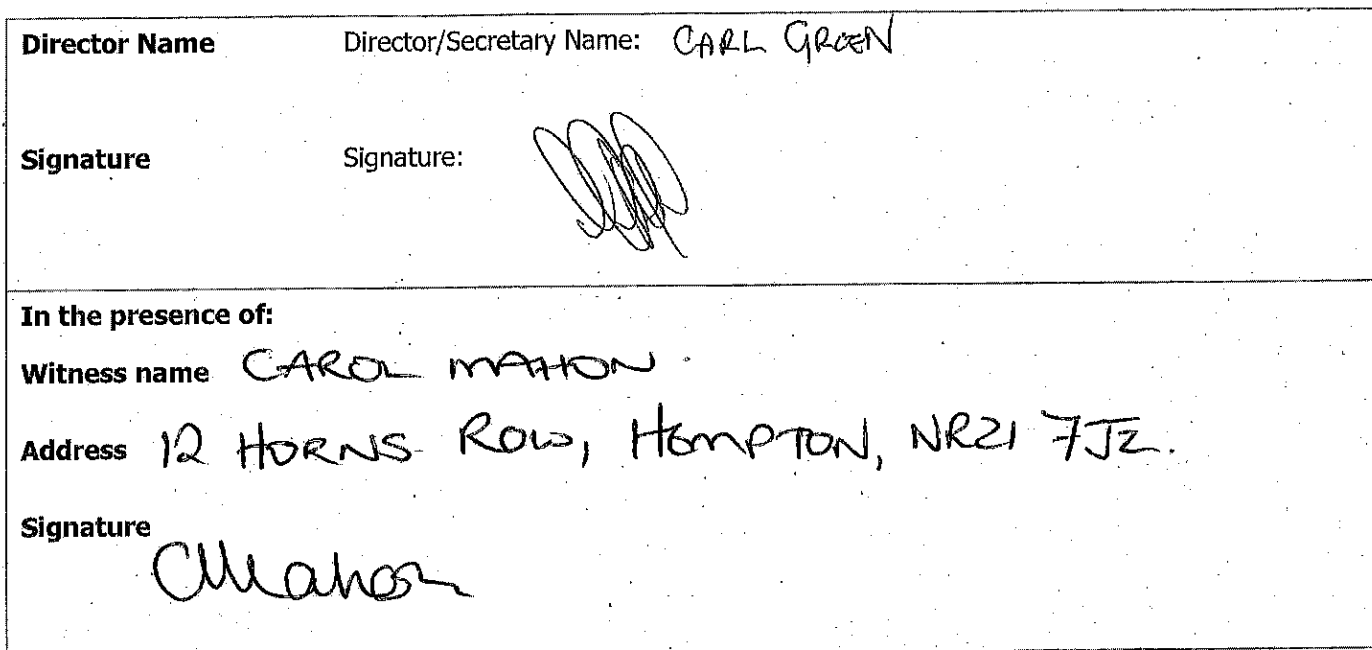 Director Name Director/Secretary Name: CARL GREEN
Signature Signature:
In the presence of:
Witness name CAROL MAHON
Address 12 HORNS ROW, HEMPTON, NR21 7JZ.
Signature
CMahon